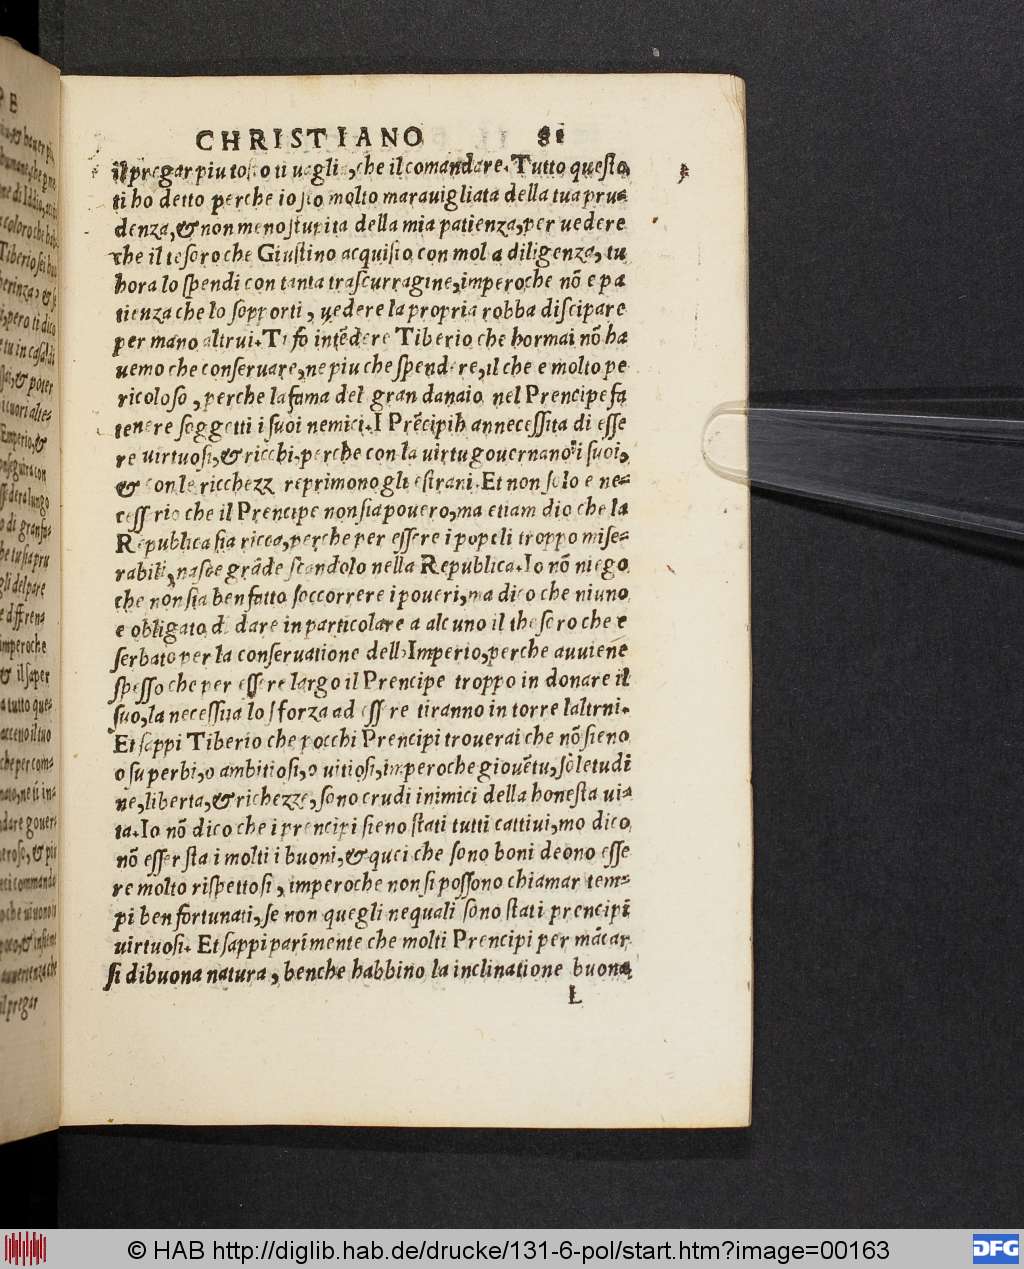 CHRISTIANO 81
il pregar piu tosto ti uaglia, che il comandare. Tutto questo
ti ho detto perche io sto molto marauigliata della tua pru-
denza, & non meno stupita della mia patienza, per uedere
che il tesoro che Giustino acquisto con mol a diligenza, tu
hora lo spendi con tanta trascurragine, imperoche nō e pa
tienza che lo sopporti, uedere la propria robba discipare
per mano altrui. Ti fo intēdere Tiberio che hormai nō ha
uemo che conseruare, ne piu che spendere, il che e molto pe
ricoloso, perche la fama del gran danaio nel Prencipe fa
tenere soggetti i suoi nemici. I Prēcipi h anno necessita di esse
re uirtuosi, & ricchi, perche con la uirtu gouernano i suoi,
& con le ricchezz reprimono gli estrani. Et non solo e ne-
cessario che il Prencipe non sia pouero, ma etiam dio che la
Republica sia ricca, perche per essere i popoli troppo mise-
rabili, nasce grāde scandolo nella Republica. Io nō niego
che non sia ben fatto soccorrere i poueri, ma dico che niuno
e obligato di dare in particolare a alcuno il thesoro che e
serbato per la conseruatione dell'Imperio, perche auuiene
spesso che per essere largo il Prencipe troppo in donare il
suo, la necessita lo sforza ad ess re tiranno in torre laltrni.
Et sappi Tiberio che pocchi Prencipi trouerai che nō sieno
o superbi, o ambitiosi, o uitiosi, imperoche giouētu, soletudi
ne, liberta, & richezze, sono crudi inimici della honesta ui-
ta. Io nō dico che i prencipi sieno stati tutti cattiui, mo dico
nō esser sta i molti i buoni, & quei che sono boni deono esse
re molto rispettosi, imperoche non si possono chiamar tem-
pi ben fortunati, se non quegli nequali sono stati prencipi
uirtuosi. Et sappi parimente che molti Prencipi per mācar
si di buona natura, benche habbino la inclinatione buona
L
© HAB http://diglib.hab.de/drucke/131-6-pol/start.htm?image=00163
DFG